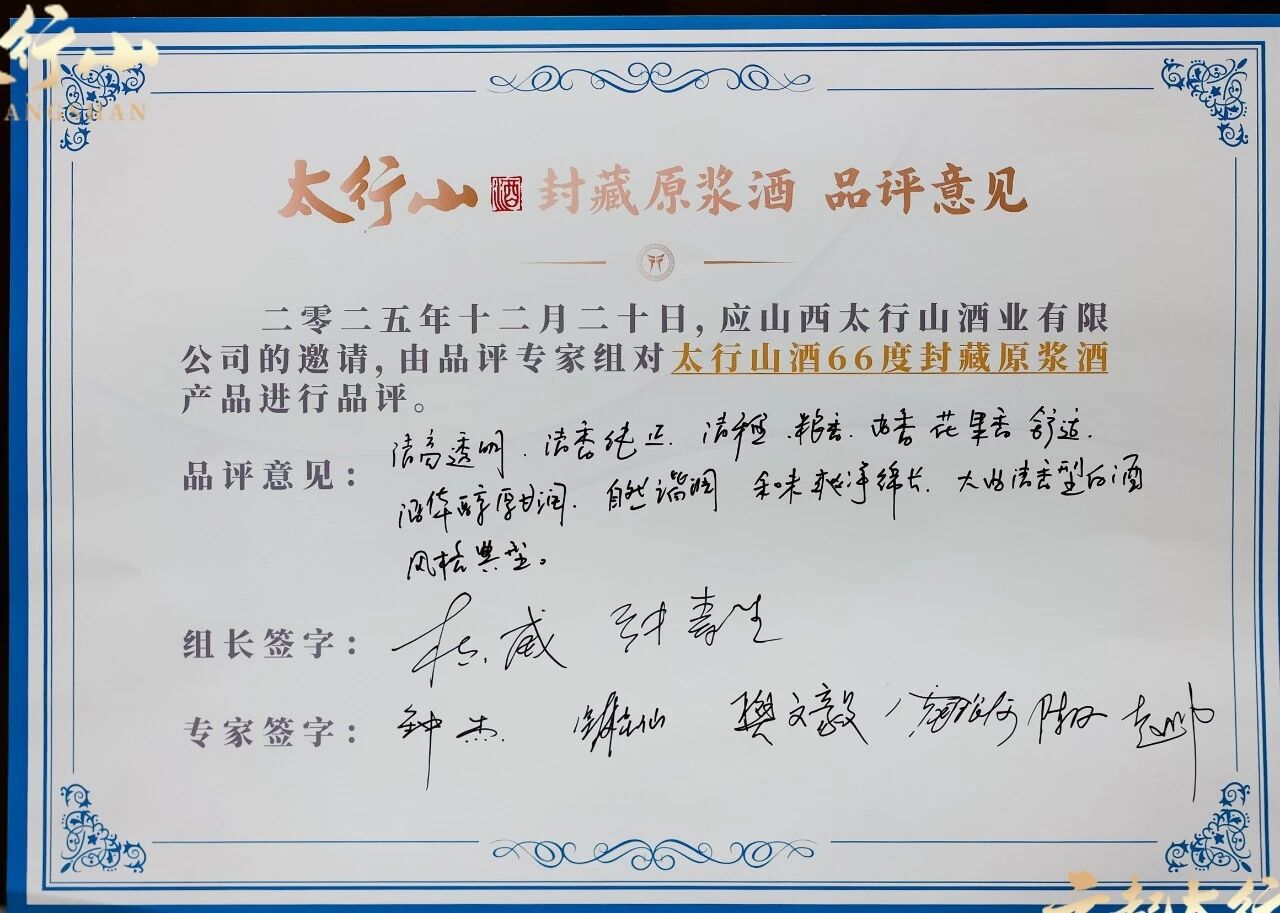 行山
ANGSHAN
太行山 酒 封藏原浆酒 品评意见
二零二五年十二月二十日,应山西太行山酒业有限
公司的邀请,由品评专家组对太行山酒66度封藏原浆酒
产品进行品评。
品评意见:
清亮透明、清香纯正、清雅、粮香、曲香、花果香舒适、
酒体醇厚甘润、自然谐调、余味爽净绵长、大曲清香型白酒
风格典型。
组长签字: 杜威 钟
专家签字: 钟杰 樊文毅